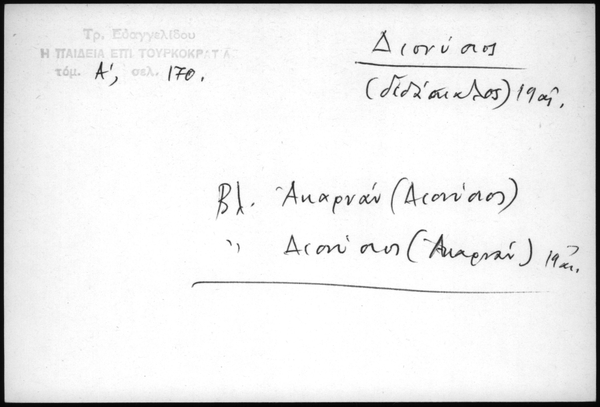 Τρ. Εὐαγγελίδου
Η ΠΑΙΔΕΙΑ ΕΠΙ ΤΟΥΡΚΟΚΡΑΤΙΑΣ
τόμ. Α', σελ. 170.
Διονύσιος
(διδάσκαλος) 19 αἰ.
Βλ. Ἀκαρνάν (Διονύσιος)
" Διονύσιος (Ἀκαρνάν) 19 αἰ.